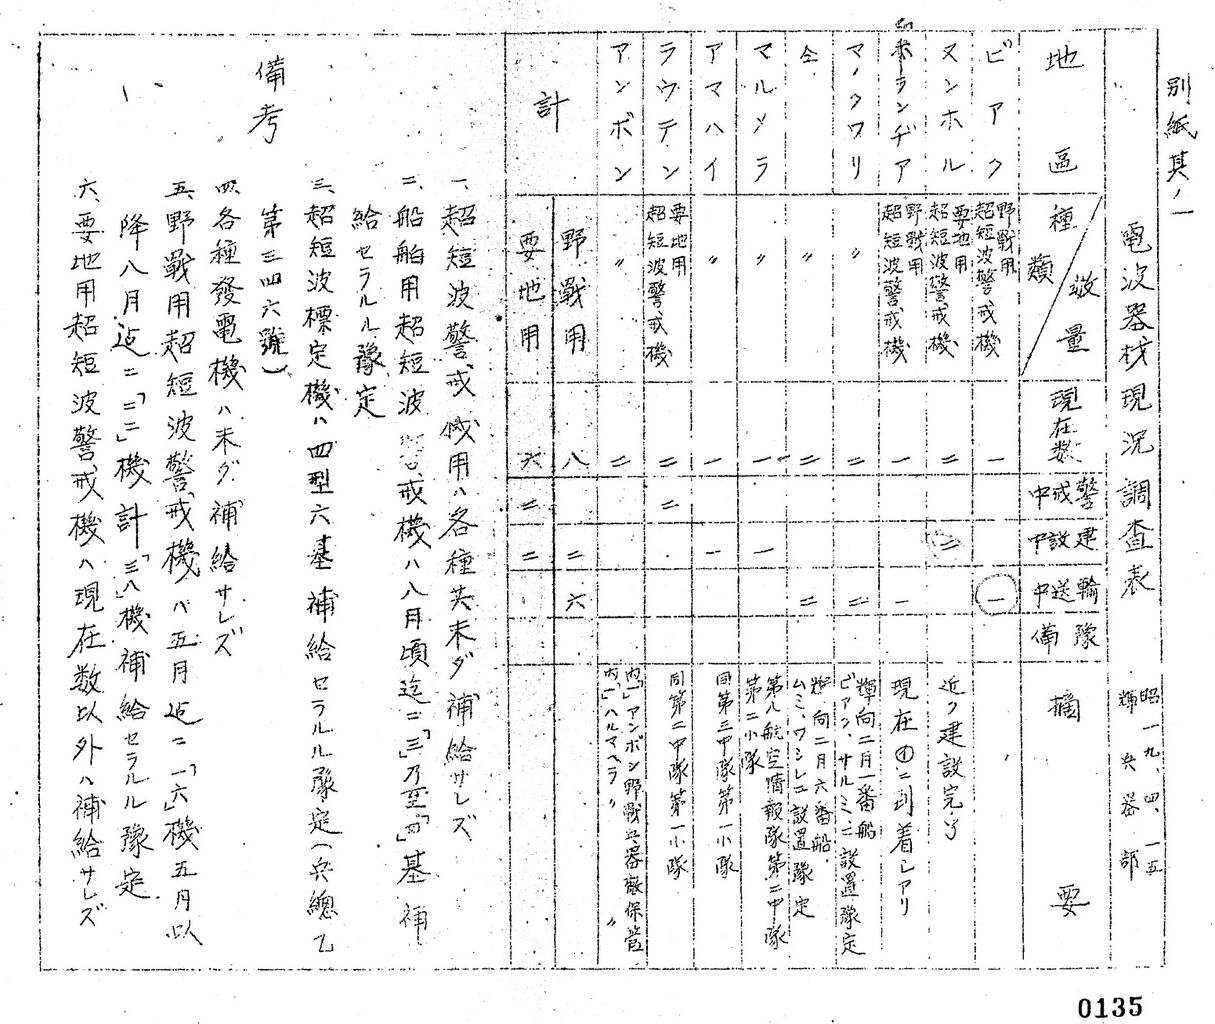 別紙其ノ一
電波器材現況調査表
昭一九、四、一五
輝兵器部
地區
種類
数量
現在数
警戒中
建設中
輸送中
豫備
摘要
ビアク
野戰用
超短波警戒機
一
一
ヌンホル
要地用
超短波警戒機
二
二
近ク建設完了
ホランヂア
野戰用
超短波警戒機
一
一
現在④ニ到着シアリ
マノクワリ
〃
二
二
輝向二月一番船
ビアク、サルミニ設置豫定
仝
〃
二
二
輝向二月六番船
ムミ、ワシレニ設置豫定
マルメラ
〃
一
一
第八航空情報隊第二中隊
第二小隊
アマハイ
〃
一
一
同第三中隊第一小隊
ラウテン
要地用
超短波警戒機
二
二
同第二中隊第一小隊
アンボン
〃
二
内「一」アンボン野戰兵器廠保管
内「一」ハルマヘラ〃 〃
計
野戰用
八
二
六
要地用
六
二
二
備考
一、超短波警戒機用ハ各種共未ダ補給サレズ
二、船舶用超短波警戒機ハ八月頃迄ニ「三」乃至「四」基補
給セラルル豫定
三、超短波標定機ハ四型六基補給セラルル豫定(兵總乙
第三四六號)
四、各種發電機ハ未ダ補給サレズ
五、野戰用超短波警戒機ハ五月迄ニ「一六」機五月以
降八月迄ニ「二二」機計「三八」機補給セラルル豫定
六、要地用超短波警戒機ハ現在数以外ハ補給サレズ
0135